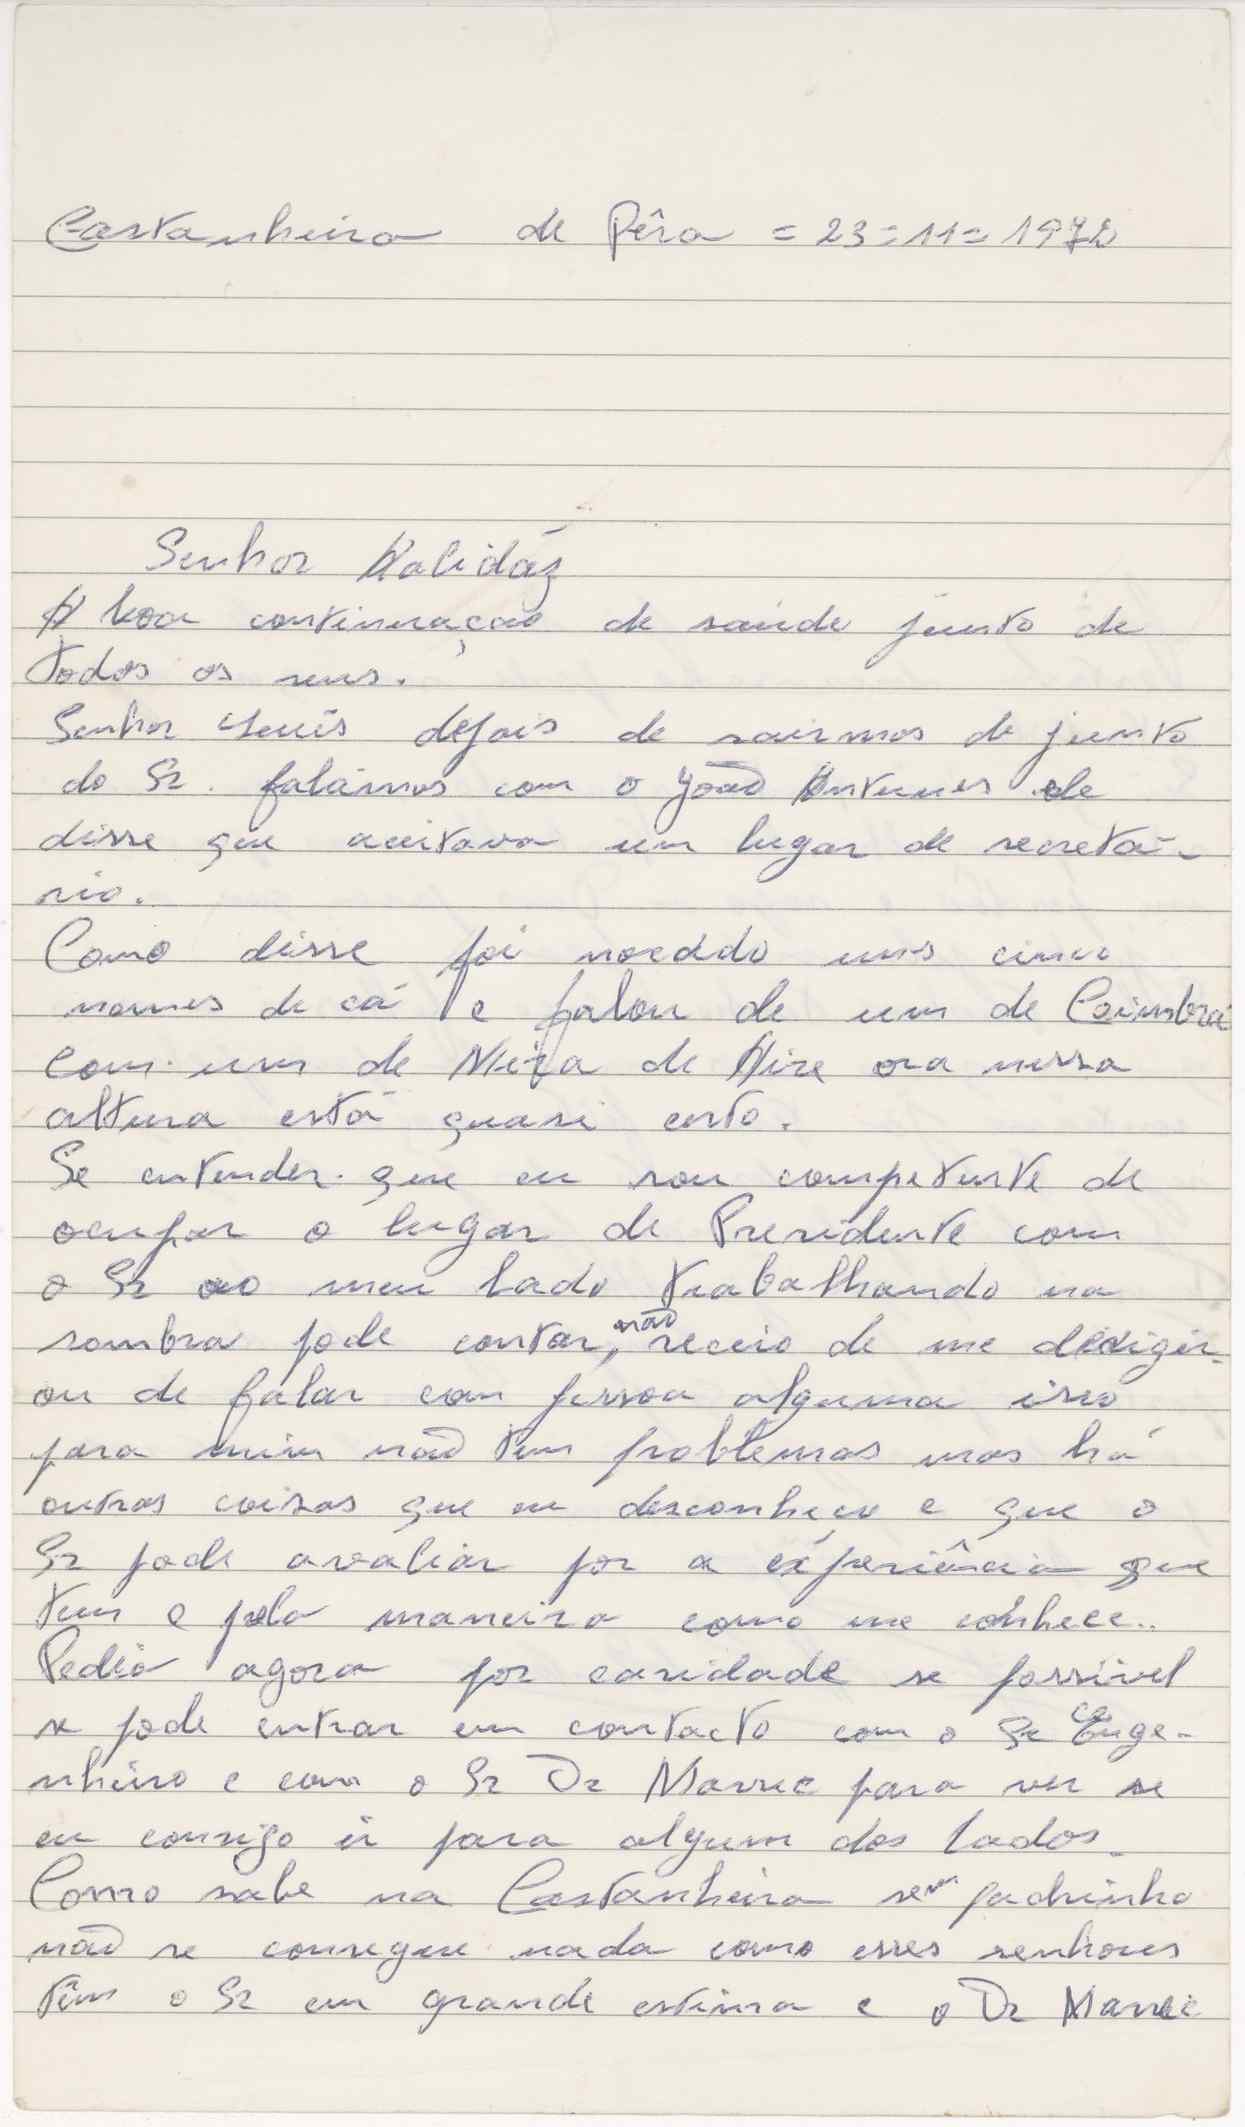 Castanheira de Pêra = 23=11=1972
Senhor Kalidáz
A boa continuação de saúde junto de
todos os seus.
Senhor Luís depois de sairmos de junto
do Sr. falámos com o João Antunes ele
disse que aceitava um lugar de secretá-
rio.
Como disse foi uns cinco
nomes de cá e falou de um de Coimbra
com um de Mira de Aire ora nessa
altura está quasi certo.
Se entender que eu sou competente de
ocupar o lugar de Presidente com
o Sr ao meu lado trabalhando na
sombra pode contar, não receio de me dirigir
ou de falar com pessoa alguma isso
para mim não tem problemas mas há
outras coisas que eu desconheço e que o
Sr pode avaliar por a experiência que
tem e pela maneira como me conhece..
Pedia agora por caridade se possível
se pode entrar em contacto com o Sr Enge-
nheiro e com o Sr Dr para ver se
eu consigo ir para algum dos lados.
Como sabe na Castanheira sem padrinho
não se consegue nada como esses senhores
têm o Sr em grande estima e o Dr